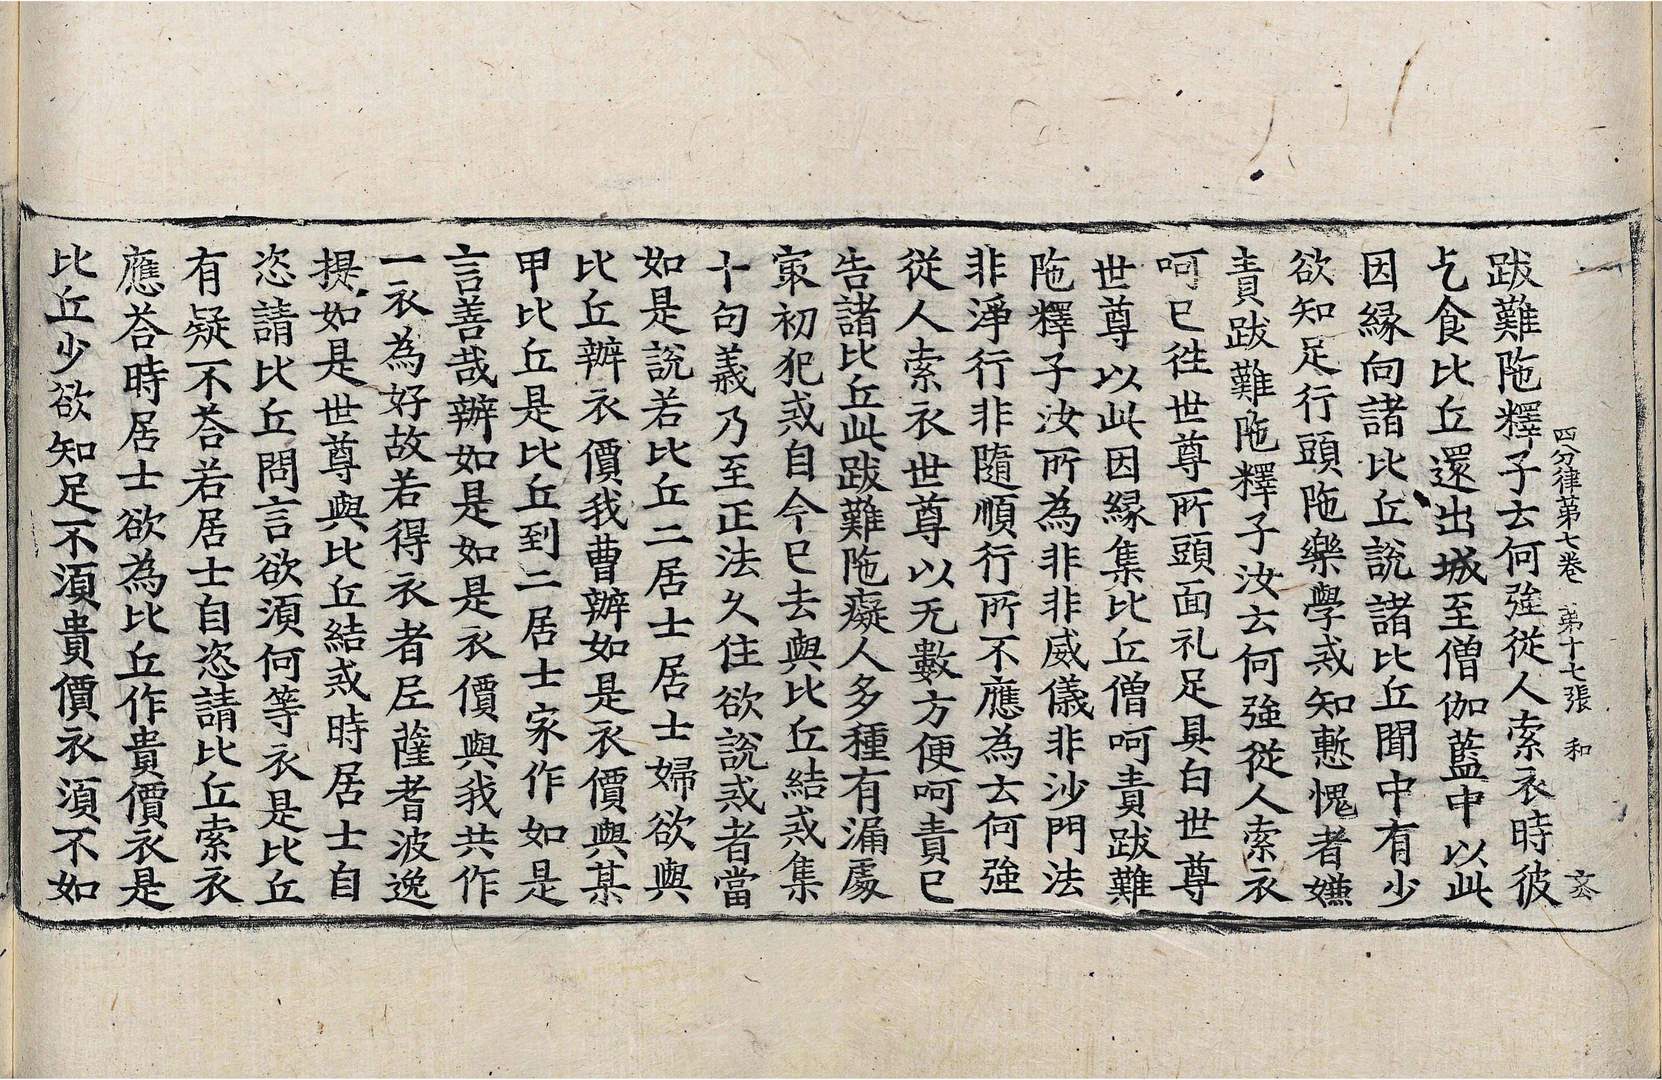 四分律第七卷　第十七張　和
跋難陁釋子去何強從人索衣時彼
乞食比丘還出城至僧伽藍中以此
因緣向諸比丘說諸比丘聞中有少
欲知足行頭陁樂學戒知慙愧者嫌
責跋難陁釋子汝去何強從人索衣
呵已徃世尊所頭面礼足具白世尊
世尊以此因緣集比丘僧呵責跋難
陁釋子汝所為非非威儀非沙門法
非淨行非隨順行所不應為去何強
從人索衣世尊以无數方便呵責已
告諸比丘此跋難陁癡人多種有漏處
㝡初犯戒自今已去與比丘結戒集
十句義乃至正法久住欲說戒者當
如是說若比丘二居士居士婦欲與
比丘辦衣價我曹辦如是衣價與某
甲比丘是比丘到二居士家作如是
言善哉辦如是如是衣價與我共作
一衣為好故若得衣者尼薩耆波逸
提如是世尊與比丘結戒時居士自
恣請比丘問言欲須何等衣是比丘
有疑不荅若居士自恣請比丘索衣
應荅時居士欲為比丘作貴價衣是
比丘少欲知足不須貴價衣須不如